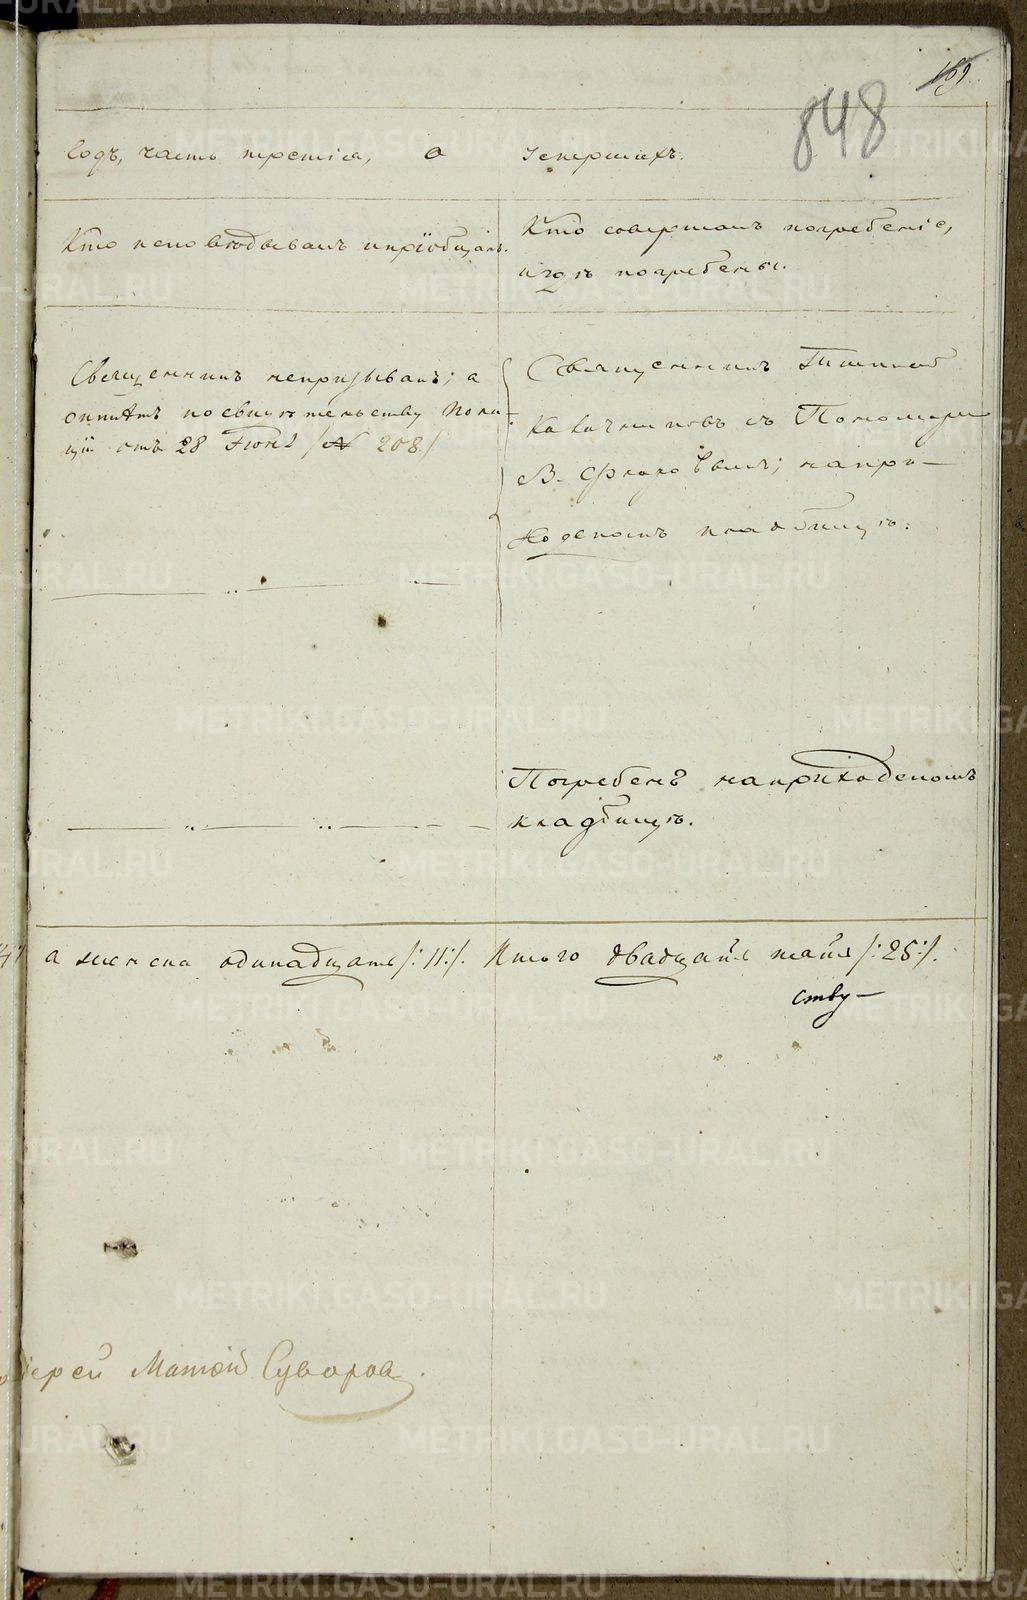 169.
848
Годъ, часть третія, о умершихъ.
Кто исповѣдывалъ и пріобщалъ.
Кто совершалъ погребеніе,
и гдѣ погребены.
Священникъ непризыванъ; а
отпѣтъ по свидѣтельству Поли-
ціи отъ 28 Іюня /№ 208./
Священникъ Тимофей
Калачниковъ съ Пономаремъ
В. Флоровымъ; наприходскомъ кладбищѣ.
Погребенъ наприходскомъ
кладбищѣ.
а женска одинадцать /:11:/. Итого двадцать пять /:25:/.
ству-
Іерей Матѳей Суворовъ.
METRIKI.GASO-URAL.RU